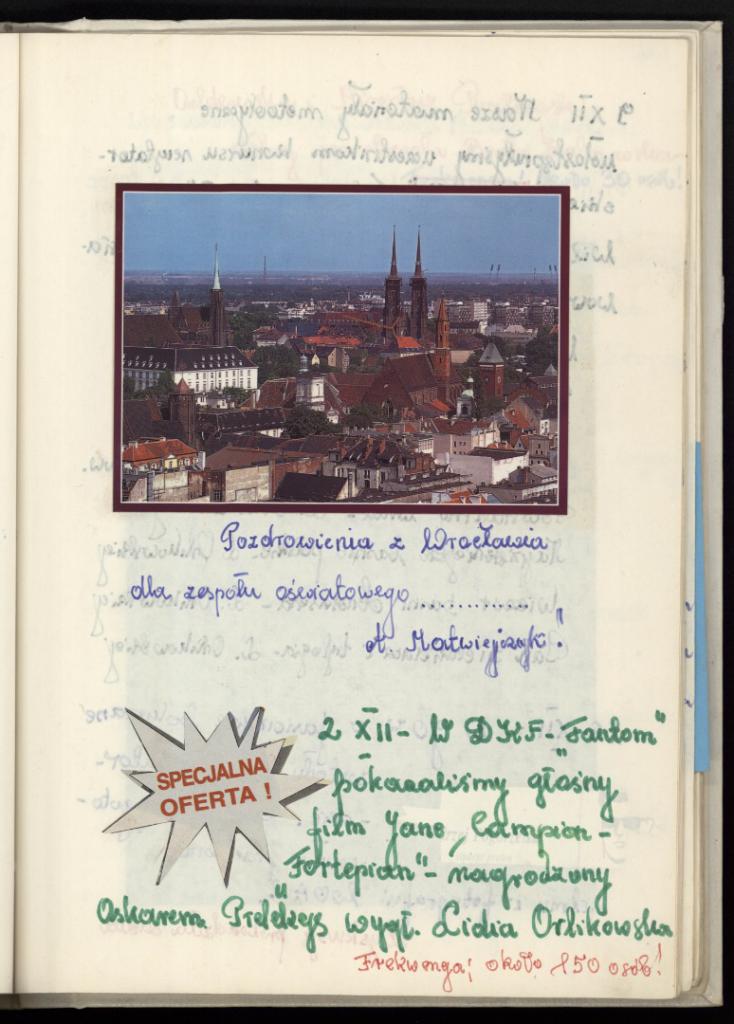 Pozdrowienia z Wrocławia
dla zespołu oświatowego..............
A. Matwiejczyk."
SPECJALNA
OFERTA !
2 XII - W DKF - "Fantom"
pokazaliśmy głośny
film Jane Campion -
"Fortepian" - nagrodzony
Oskarem. Prelekcję wygł. Lidia Orlikowska
Frekwencja; około 150 osób!